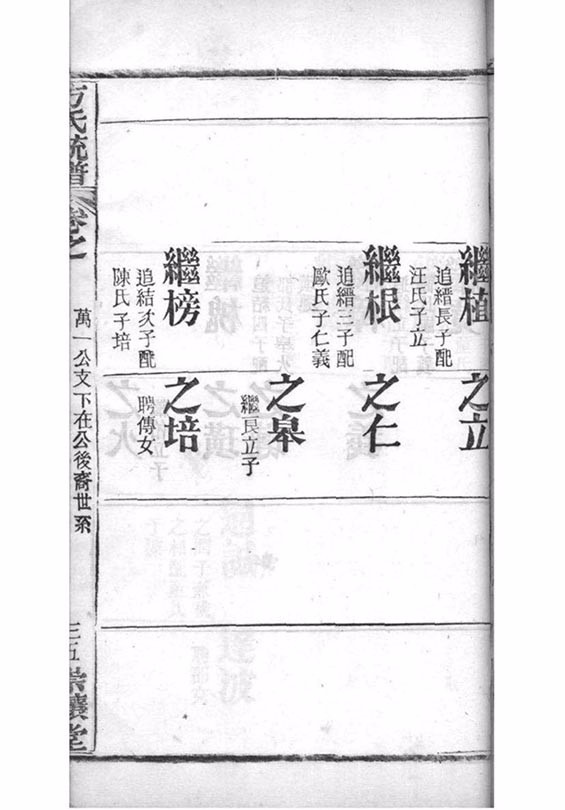 繼植
追縉長子配
汪氏子立
繼根
追縉三子配
歐氏子仁義
繼榜
追結次子配
陳氏子培
之立
之仁
之皋
繼良立子
之培
聘傳女
方氏統譜
卷之
萬一公支下在公後裔世系
三五
崇讓堂